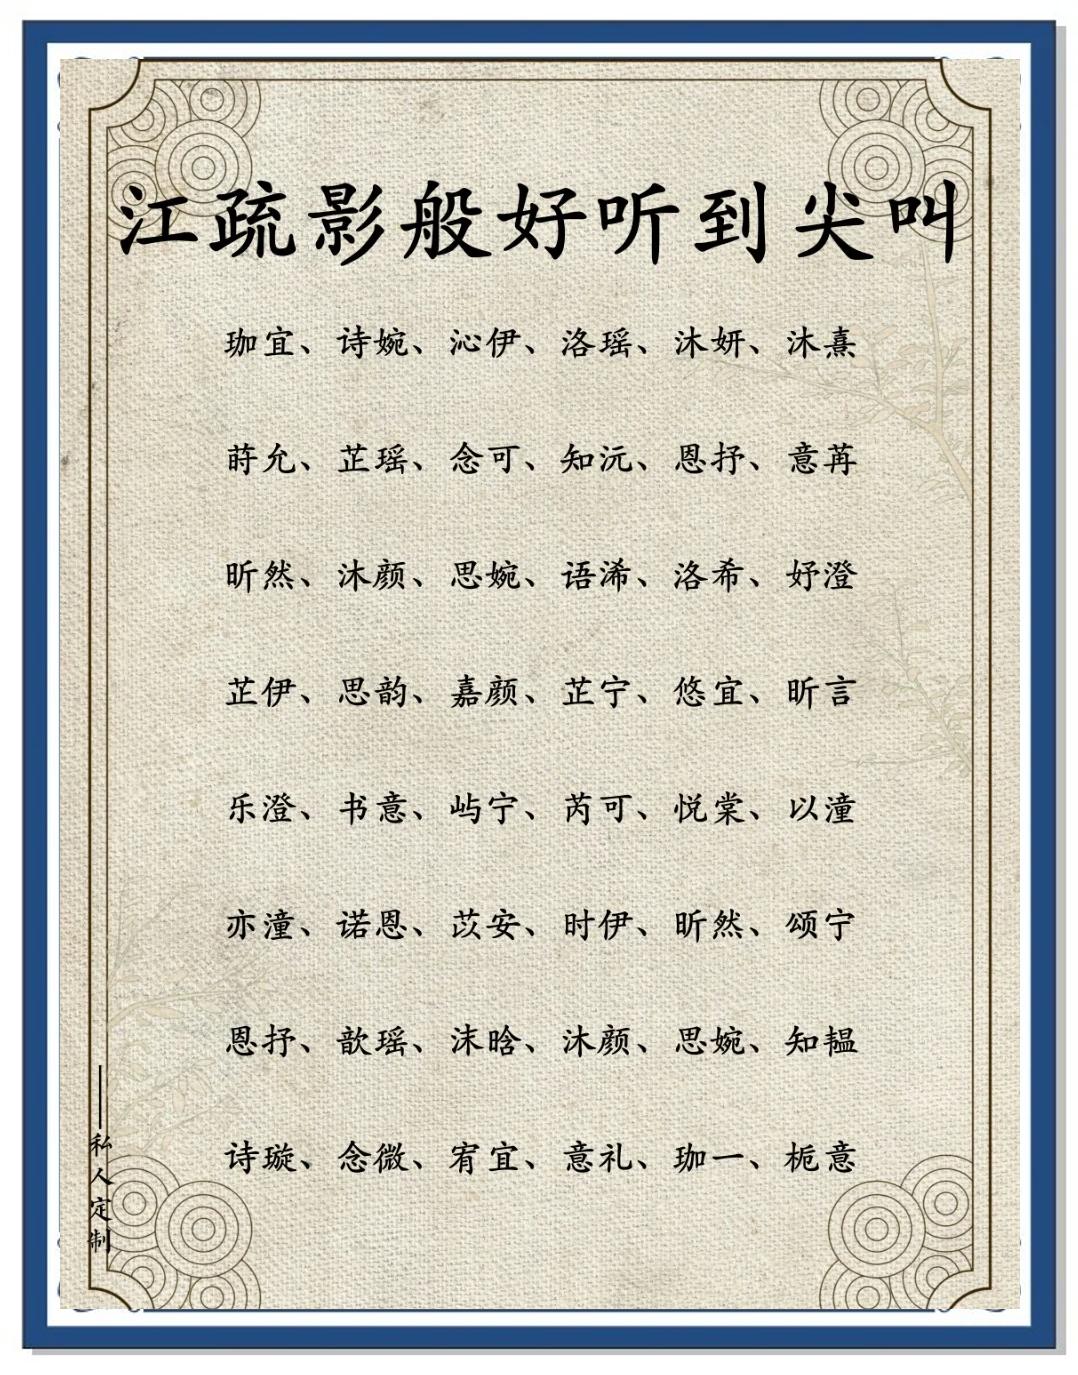 江疏影般好听到尖叫
珈宜、诗婉、沁伊、洛瑶、沐妍、沐熹
莳允、芷瑶、念可、知沅、恩抒、意苒
昕然、沐颜、思婉、语浠、洛希、妤澄
芷伊、思韵、嘉颜、芷宁、悠宜、昕言
乐澄、书意、屿宁、芮可、悦棠、以潼
亦潼、诺恩、苡安、时伊、昕然、颂宁
恩抒、歆瑶、沫晗、沐颜、思婉、知韫
诗璇、念微、宥宜、意礼、珈一、栀意
——私人定制